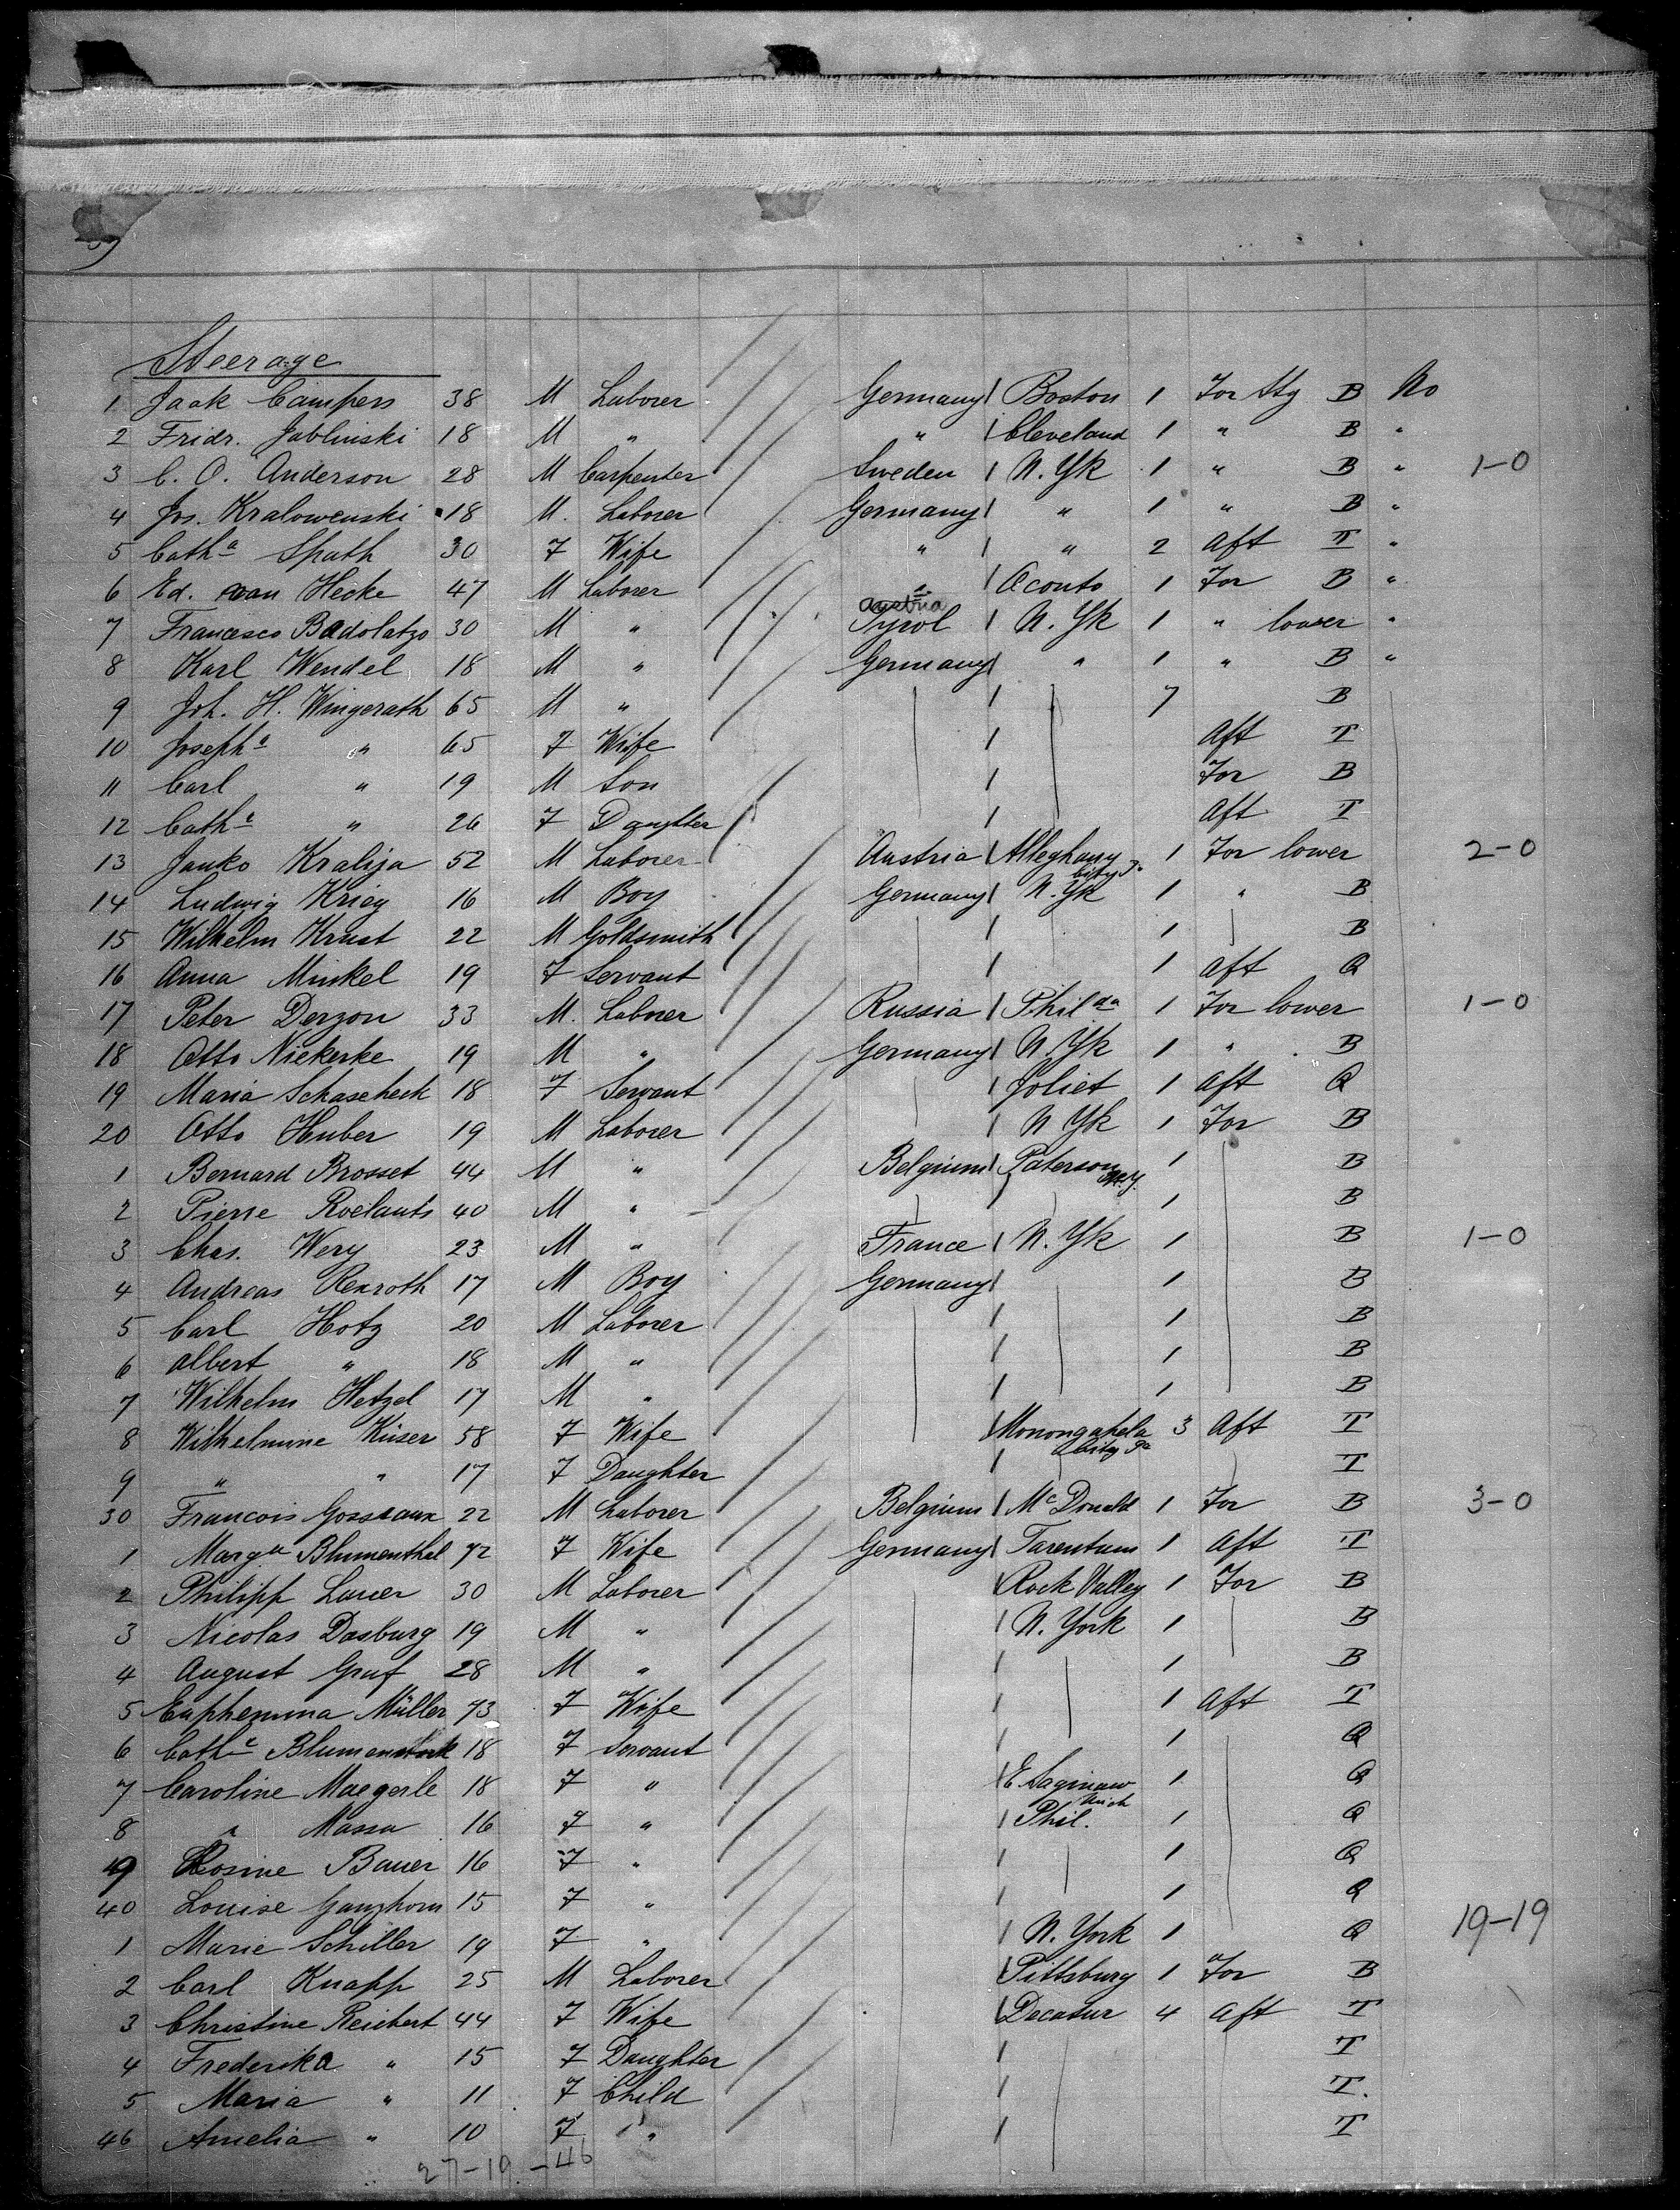 Steerage
1 Jaak Campers 38 M Laborer Germany Boston 1 For Stg B No
2 Fridr. Jablinski 18 M " " Cleveland 1 " B "
3 C. O. Anderson 28 M Carpenter Sweden N. Yk 1 " B " 1-0
4 Jos. Kralowenski 18 M. Laborer Germany " 1 " B "
5 Cath a Spath 30 F Wife " " 2 Aft T "
6 Ed. van Hecke 47 M Laborer " Oconto 1 For B "
7 Francesco Badolatzo 30 M " Austria Tyrol N. Yk 1 " lower "
8 Karl Wendel 18 M " Germany " 1 " B "
9 Joh. H. Wingerath 65 M " 7 B
10 Joseph a " 65 F Wife Aft T
11 Carl " 19 M Son For B
12 Cath a " 26 F Daughter Aft T
13 Janko Kralija 52 M Laborer Austria Alleghany City P. 1 For lower 2-0
14 Ludwig Krieg 16 M Boy Germany N. Yk 1 " B
15 Wilhelm Krust 22 M Goldsmith 1 B
16 Anna Minkel 19 F Servant 1 Aft Q
17 Peter Derzon 33 M. Laborer Russia Phil da 1 For lower 1-0
18 Otto Niekerke 19 M " Germany N. Yk 1 " B
19 Maria Schascheck 18 F Servant Joliet 1 Aft Q
20 Otto Huber 19 M Laborer N Yk 1 For B
1 Bernard Brosset 44 M " Belgium Paterson N.J. 1 B
2 Pierre Roelants 40 M " 1 B
3 Chas. Wery 23 M " France N. Yk 1 B 1-0
4 Andreas Rexroth 17 M Boy Germany 1 B
5 Carl Hotz 20 M Laborer 1 B
6 Albert " 18 M " 1 B
7 Wilhelm Hetzel 17 M " 1 B
8 Wilhelmine Küser 58 F Wife Monongahela City Pa 3 Aft T
9 " " 17 F Daughter T
30 Francois Gosseaux 22 M Laborer Belgium McDonald 1 For B 3-0
1 Marg a Blumenthal 72 F Wife Germany Tarentum 1 Aft T
2 Philipp Lauer 30 M Laborer Rock Valley 1 For B
3 Nicolas Dasburg 19 M " N. York 1 B
4 August Graf 28 M " 1 B
5 Euphemina Müller 73 F Wife 1 Aft T
6 Cath a Blumenstock 18 F Servant 1 Q
7 Caroline Maegerle 18 F " E. Saginaw Mich 1 Q
8 " Massa 16 F " Phil. 1 Q
9 Rosine Bauer 16 F " 1 Q
40 Louise Ganzhorn 15 F " 1 Q
1 Marie Schiller 19 F " N. York 1 Q 19-19
2 Carl Knapp 25 M Laborer Pittsburg 1 For B
3 Christine Reichert 44 F Wife Decatur 4 Aft T
4 Frederika " 15 F Daughter T
5 Maria " 11 F Child T.
46 Amelia " 10 F " T
27-19-46